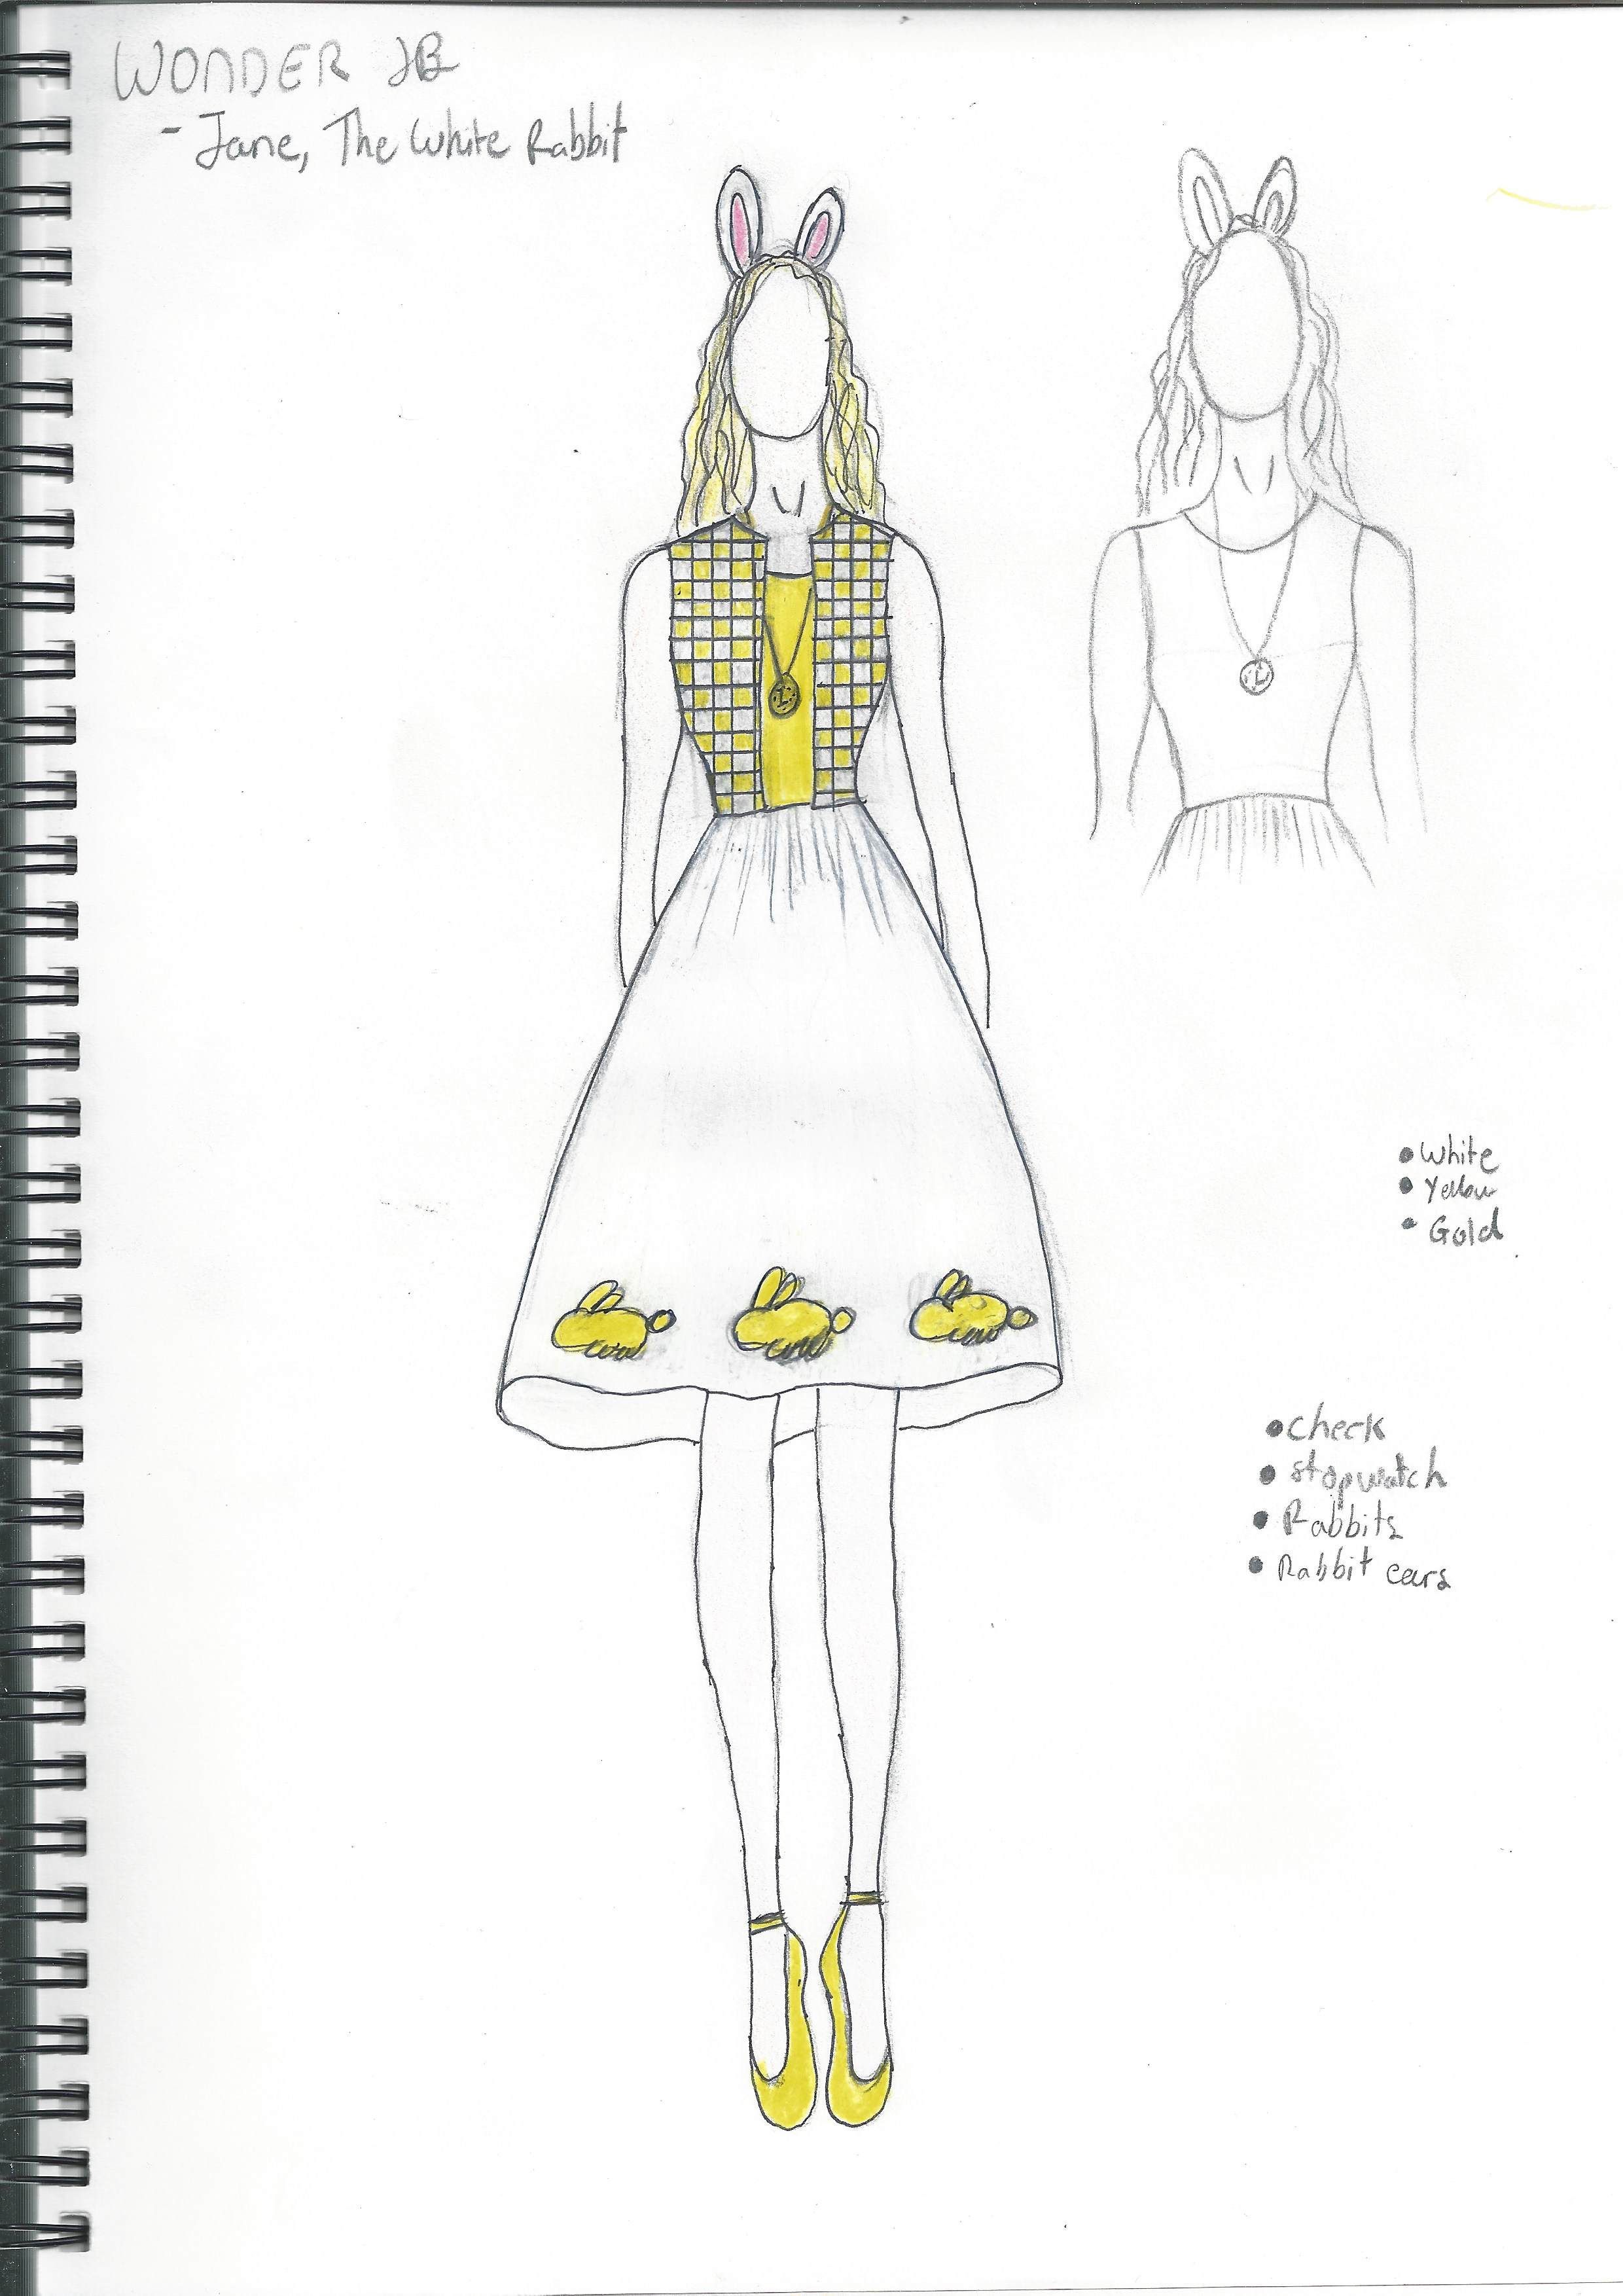 WONDER JB
- Jane, The White Rabbit
• White
• Yellow
• Gold
• Check
• Stopwatch
• Rabbits
• Rabbit ears